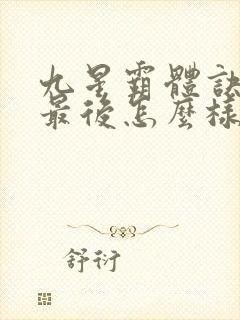 九星霸體訣
最後怎麼樣
舒衍